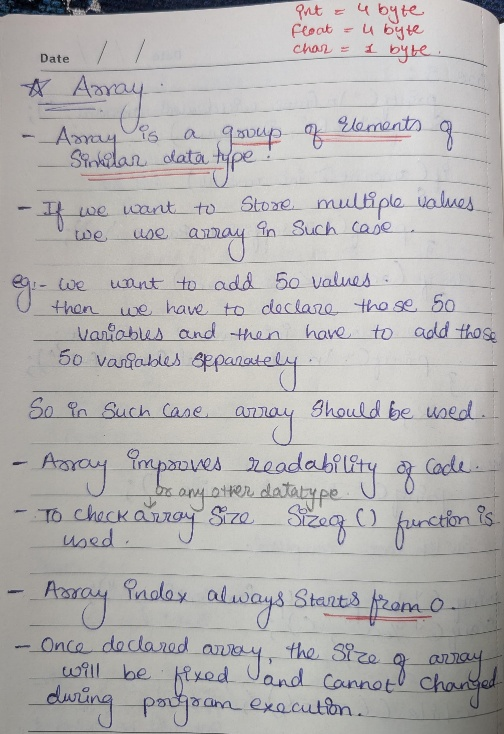 int = 4 byte
float = 4 byte
char = 1 byte.
Date / /
☆ Array.
- Array is a group of elements of
Similar data type.
- If we want to Store multiple values
we use array in Such case.
eg:- we want to add 50 values.
then we have to declare those 50
variables and then have to add those
50 variables separately.
So in Such case array should be used.
- Array improves readability of code.
or any other datatype
- To check array Size Sizeof () function is
used.
- Array index always Starts from 0.
- Once declared array, the Size of array
will be fixed and cannot changed
during program execution.